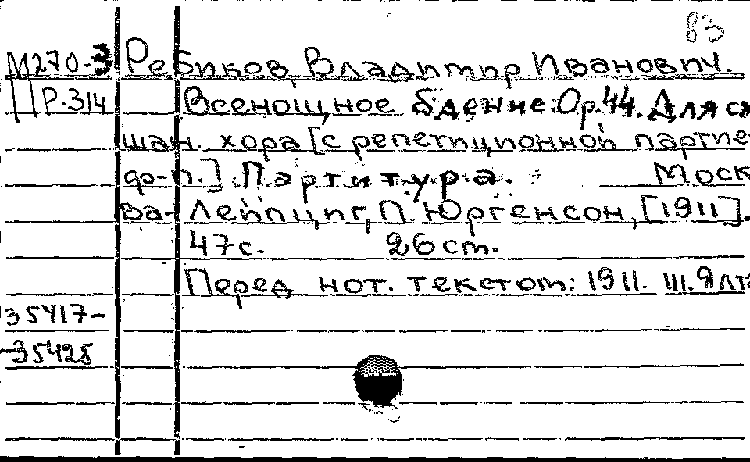 83
М270-3 Ребиков, Владимир Иванович.
Р-314 Всенощное бдение. Ор. 44. Для см
шан. хора [с репетиционной партие
ф-п.]. Партитура. Моск
ва-Лейпциг, П. Юргенсон, [1911].
47 с. 26 ст.
Перед нот. текстом: 1911. III. Ялта
35417-
-35425